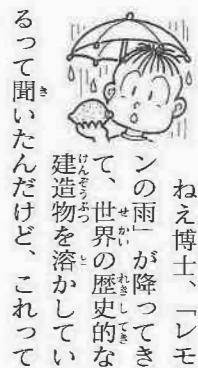 ねえ博士、「レモ
ンの雨」が降ってき
て、世界の歴史的な
建造物を溶かしてい
るって聞いたんだけど、これって